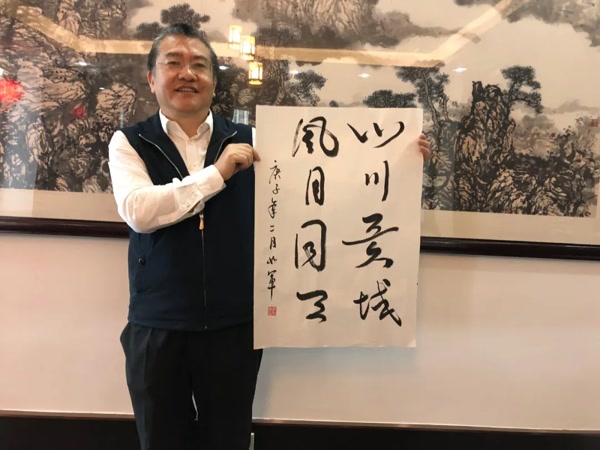 山川异域
风月同天
庚子年二月如军